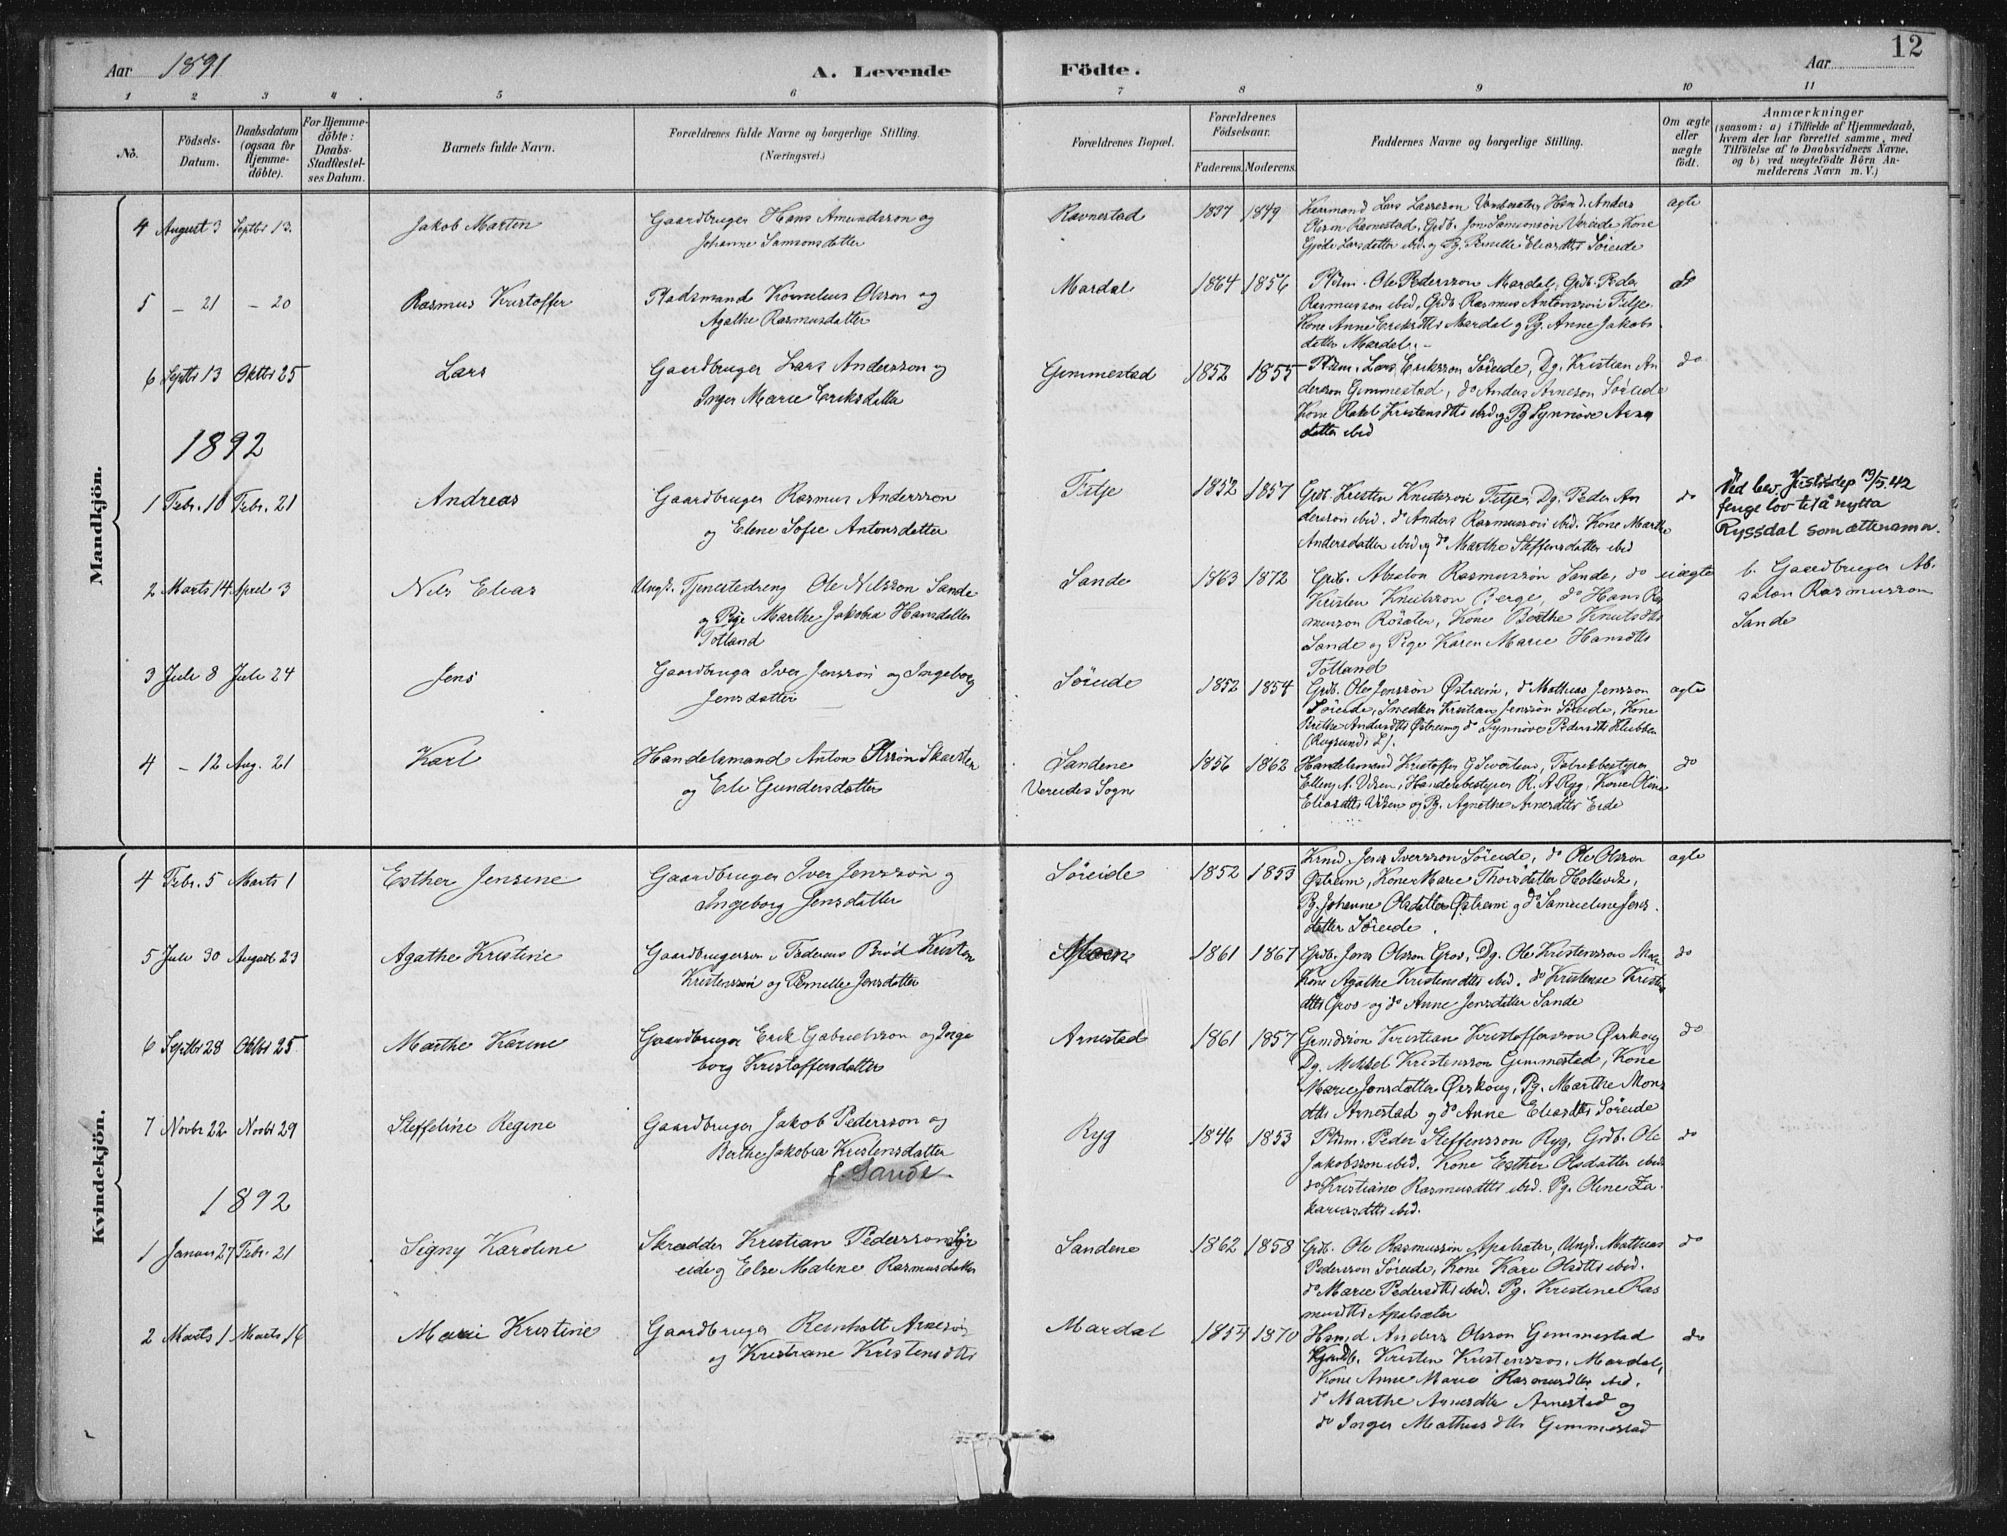 12
Aar 1891
A. Levende Födte.
Aar
1 2 3 4 5 6 7 8 9 10 11
No.
Födsels-Datum.
Daabsdatum (ogsaa for Hjemme-döbte).
For Hjemme-döbte: Daabs-Stadfestel-ses Datum.
Barnets fulde Navn.
Forældrenes fulde Navne og borgerlige Stilling. (Næringsvei.)
Forældrenes Bopæl.
Forældrenes Födselsaar.
Faderens. Moderens.
Faddernes Navne og borgerlige Stilling.
Om ægte eller uægte födt.
Anmærkninger
(saasom: a) i Tilfælde af Hjemmedaab, hvem der har forrettet samme, med Tilföielse af to Daabsvidners Navne, og b) ved uægtefödte Börn An-melderens Navn m. V.)
Mandkjön.
4 August 3 Septbr 13. Jakob Martin
Gaardbruger Hans Amundsson og
Johanne Samsonsdatter
Ravnestad 1837 1849
Kaarmand Lars Lasseson Vonheräter, Hsmd. Anders
Olsson Ravnestad, Grdb. Jon Samsonson Vereide Kone
Gjöle Larsdatter ibid og Pg. Pernille Eliasdtts Söreide
ægte
5 – 21 – 20 Rasmus Kristoffer
Pladsmand Kornelius Olsson og
Agathe Rasmusdatter
Mardal 1864 1856
Pldsm. Ole Pedersson Mardal, Grdb. Peder
Rasmusson ibid, Grdb. Rasmus Antonsson Fitje.
Kone Anne Eriksdtts Mardal og Pg. Anne Jakobs
datter Mardal. –
do
6 Septbr 13 Oktbr 25 Lars
Gaardbruger Lars Andersson og
Inger Marie Eriksdatter
Gimmestad 1852 1855
Pldsm. Lars Eriksson Söreide, Dg. Kristian An
dersson Gimmestad, do Anders Arneson Söreide
Kone Rakel Kristensdtts ibid og Pg Synnöve Arne
datter ibid
do
1892
1 Febr. 10 Febr. 21 Andreas
Gaardbruger Rasmus Andersson
og Elene Sofie Antonsdatter
Fitje 1852 1857
Grdb. Kristen Knutsson Fitje, Dg. Peder An
dersson ibid. do Anders Rasmusson ibid. Kone Marthe
Andersdatter ibid og do Marthe Steffensdatter ibid
do
Ved bev. Justisdep 19/5.42
fenge lov til å nytta
Ryssdal som ættenamn.
2 Marts 14 April 3 Nils Elias
Ungk. Tjenestedreng Ole Nilsson Sande
og Pige Marthe Jakobea Hansdatter
Totland
Sande 1863 1872
Grdb. Absalon Rasmusson Sande, do
Kristen Knutsson Berge, do Hans Ras
musson Rösæten, Kone Berthe Knutsdtts
Sande og Pige Karen Marie Hansdtts
Totland
uægte
b. Gaardbruger Ab.
salon Rasmusson
Sande
3 Juli 8 Juli 24 Jens
Gaardbruger Iver Jensson og Ingeborg
Jensdatter
Söreide 1852 1854
Grdb. Ole Jensson Østreim, do Mathias Jensson
Söreide, Snedker Kristian Jensson Söreide, Kone
Brithe Andersdtts Østreim og do Synnöve Pedersdtts Klubben
(Rugsunds S.).
ægte
4 – 12 Aug. 21 Karl
Handelsmand Anton Olsson Skarsten
og Eli Gundersdatter
Sandene
Vereides Sogn
1856 1862
Handelsmand Kristoffer G Sivertsen, Fabrikbestyrer
Elling A. Visen, Handelsbestyrer R. A. Ryg, Kone Oline
Eliasdtts Visen og Pg. Agnethe Arnesdtts Eide
do
Kvindekjön.
4 Febr. 5 Marts 1 Esther Jensine
Gaardbruger Iver Jensson og
Ingeborg Jensdatter
Söreide 1852 1853
Krmd. Jens Iversson Söreide, do Ole Olsson
Østreim, Kone Marie Thorsdatter Hollevik,
Pg. Johanne Olsdatter Østreim og do Samueline Jens
datter Söreide.
ægte
5 Juli 30 August 23 Agathe Kristine
Gaardbrugerson i Faderens Bröd Kristen
Kristensson og Pernille Jensdatter
Moen 1861 1867
Grdb. Jens Olsson Gros, Dg. Ole Kristensson Moen
Kone Agathe Kristensdtts ibid. do Kristense Kristens
dtts Gros og do Anne Jensdatter Sande
do
6 Septbr 28 Oktbr 25 Marthe Karine
Gaardbruger Erik Gabrielsson og Inge
borg Kristoffersdatter
Arnestad 1861 1857
Grmdssön Kristian Kristoffersson Ørskoug
Dg. Mikkel Kristensson Gimmestad, Kone
Marie Jonsdatter Ørskoug, Pg. Marthe Mons
dtts Arnestad og do Anne Eliasdtts Söreide
do
7 Novbr 22 Novbr 29 Steffeline Regine
Gaardbruger Jakob Pedersson og
Berthe Jakobea Kristensdatter
f. Sande
Ryg 1846 1853
Pldsm. Peder Steffensson Ryg, Grdb. Ole
Jakobsson ibid. Kone Esther Olsdatter ibid
do Kristiane Rasmusdtts ibid. Pg. Oline Za-
kariasdtts ibid.
do
1892
1 Januar 27 Febr. 21 Signy Karoline
Skrædder Kristian Pedersson Sör
eide og Else Malene Rasmusdatter
Sandene 1862 1858
Grdb. Ole Rasmusson Apalsæter, Ungk. Mathias
Pedersson Söreide, Kone Kari Olsdtts ibid.
do Marie Pedersdtts ibid. Pg. Kristine Ras
musdtts Apalsæter
do
2 Marts 1 Marts 16 Marie Kristine
Gaardbruger Reinholt Arnesön
og Kristiane Kristensdtts
Mardal 1854 1870
Hsmd Anders Olsson Gimmestad
Grdb. Kristen Kristensson Mardal,
Kone Anne Marie Rasmusdtts ibid.
do Marthe Arnesdtts Arnestad og
do Inger Mathiasdtts Gimmestad
do